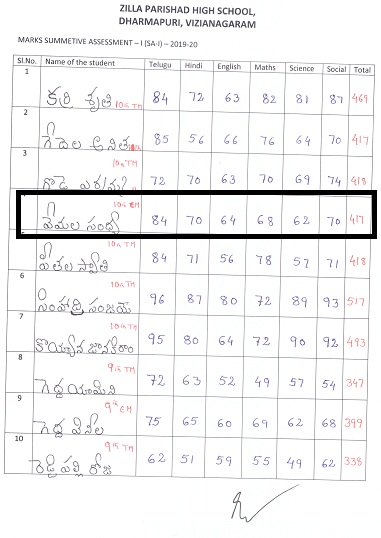 ZILLA PARISHAD HIGH SCHOOL,
DHARMAPURI, VIZIANAGARAM
MARKS SUMMETIVE ASSESSMENT – I (SA-I) – 2019-20
Sl.No. Name of the student Telugu Hindi English Maths Science Social Total
1 కర్రి శృతి 10th TM 84 72 63 82 81 87 469
2 గెదెల అనిత 85 56 66 76 64 70 417
3 10th TM 72 70 63 70 69 74 418
వేమల సంధ్య 10th EM 84 70 64 68 62 70 417
పీతల స్వాతి 10th TM 84 71 56 78 57 71 418
6 సింహాద్రి సంజయ్ 10th TM 96 87 80 72 89 93 517
7 కొయ్యాన జానకిరాం 10th TM 95 80 64 72 90 92 493
8 గెద్ద యామిని 9th TM 72 63 52 49 57 54 347
9 గెద్ద వినీల 9th EM 75 65 60 69 62 68 399
10 రెడ్డిపల్లి రోజా 9th TM 62 51 59 55 49 62 338